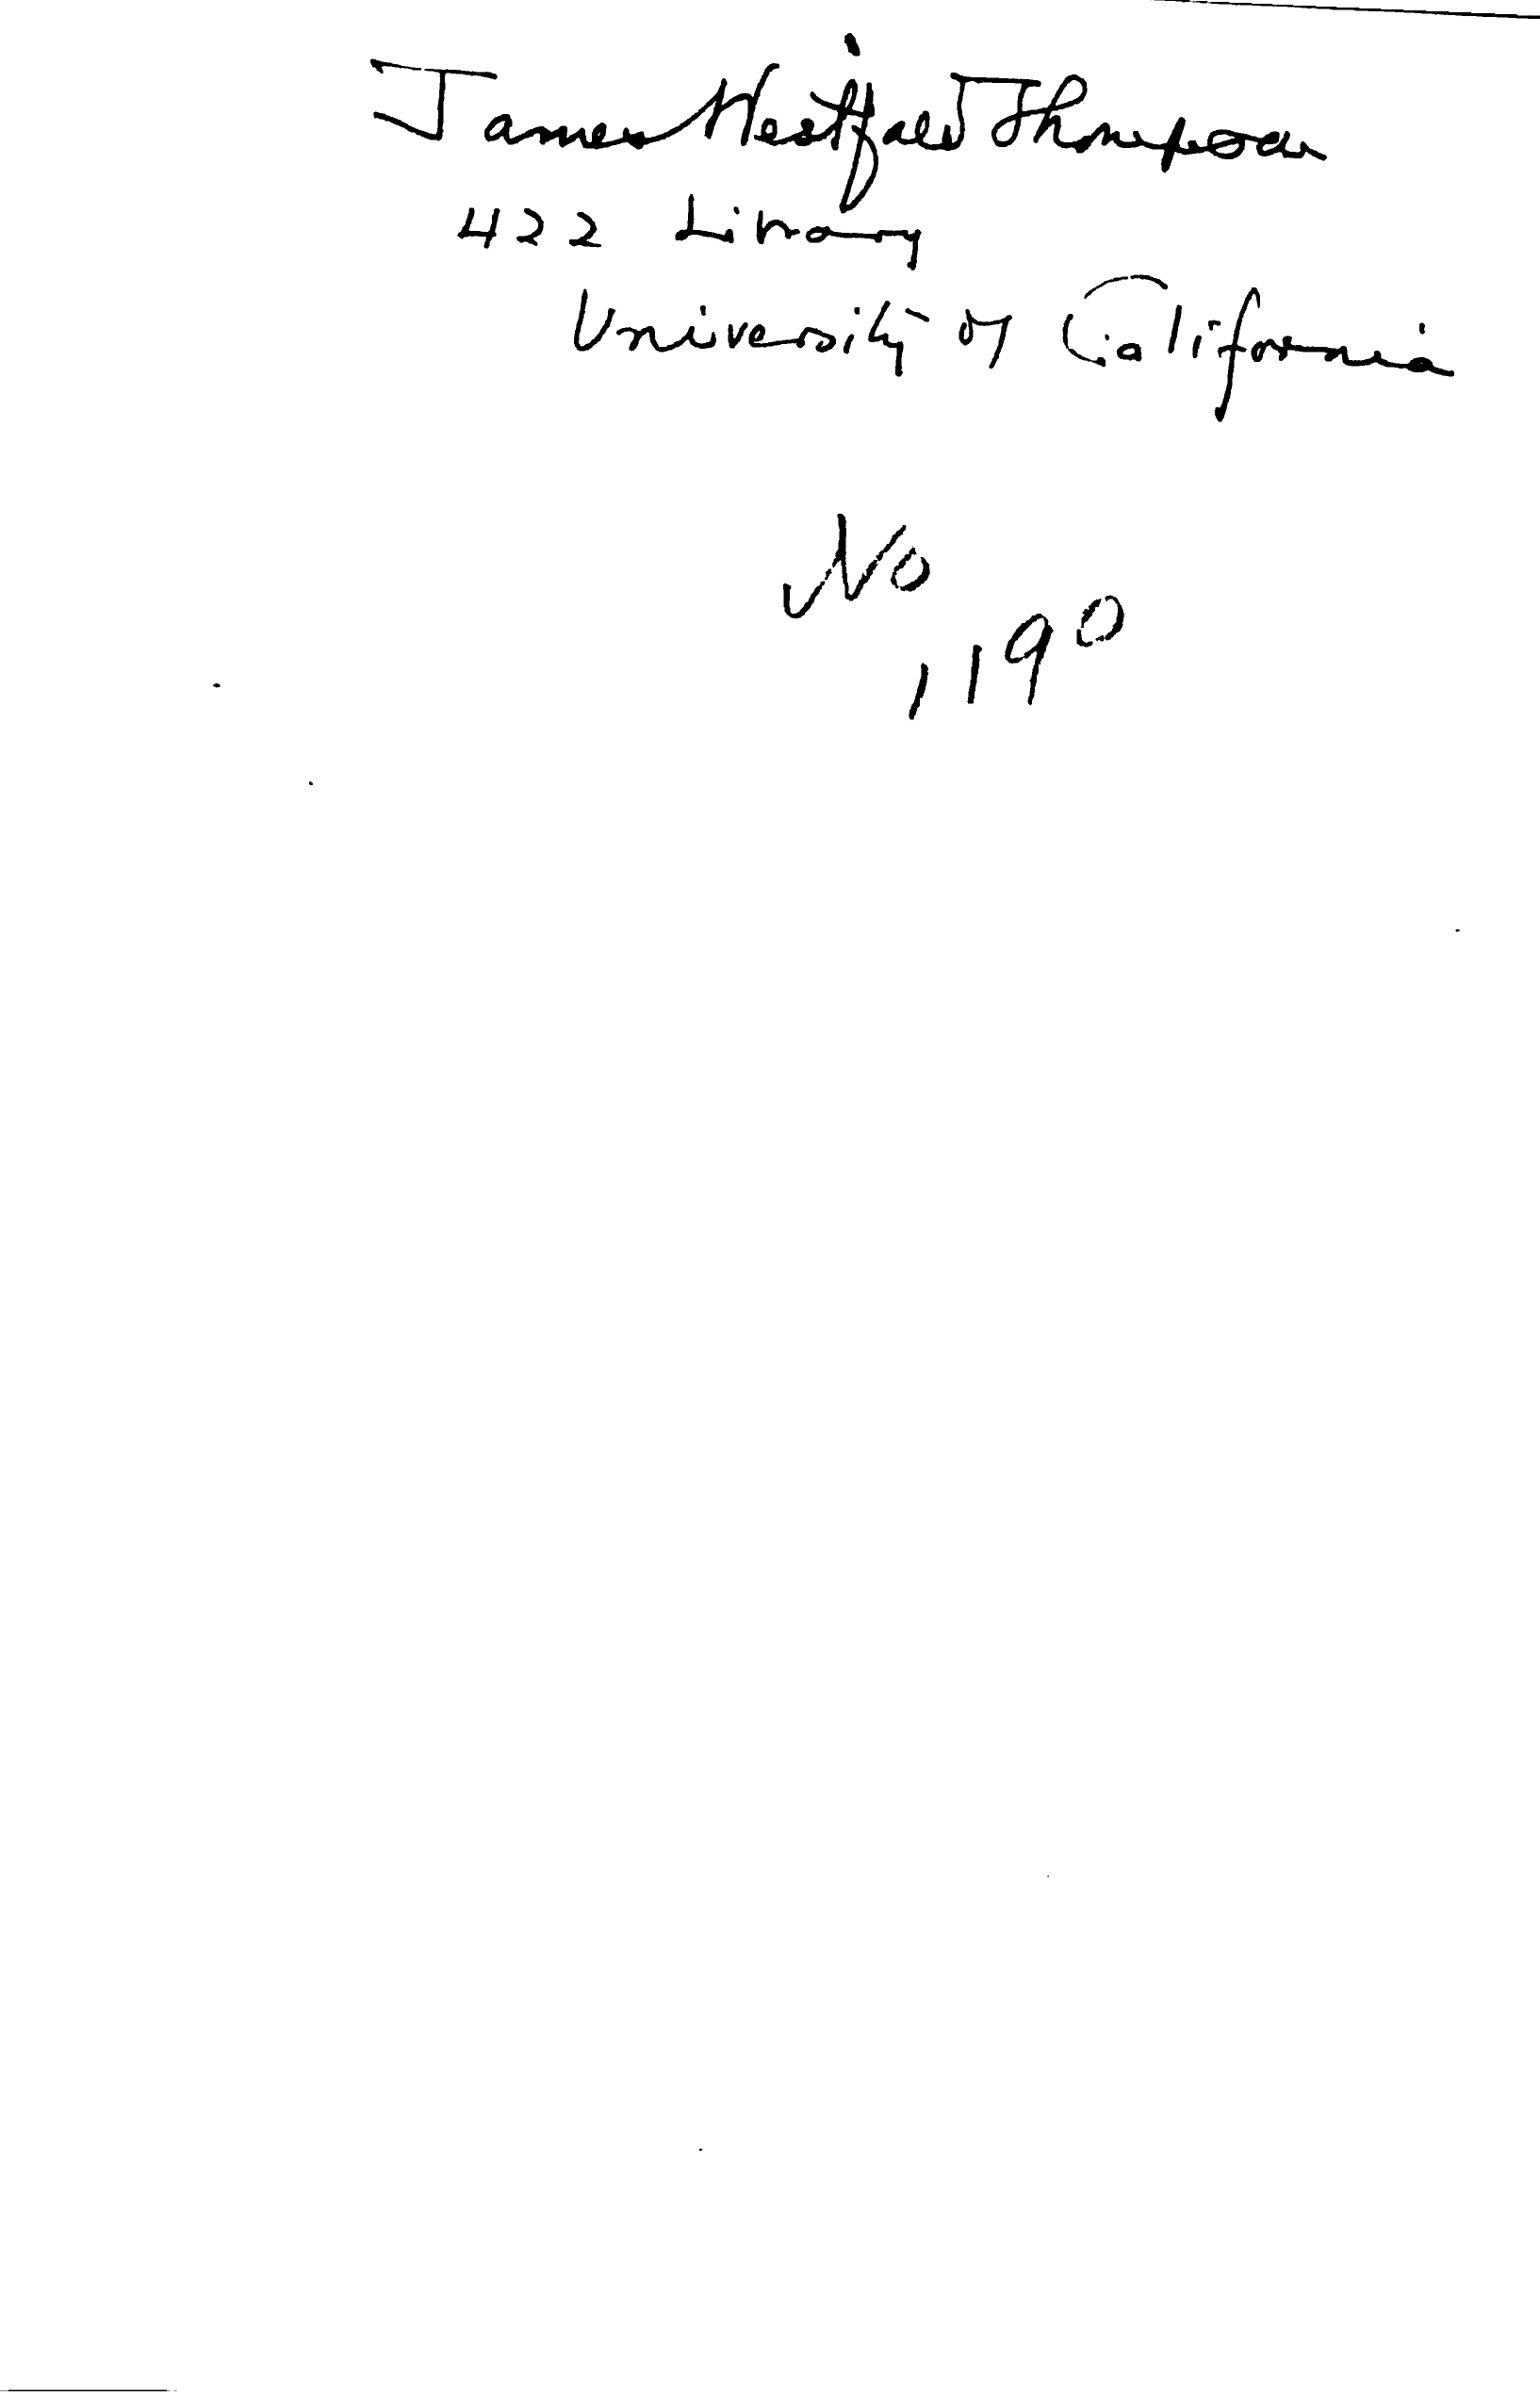 James Westfall Thompson
422 Library
University of California
No
1190